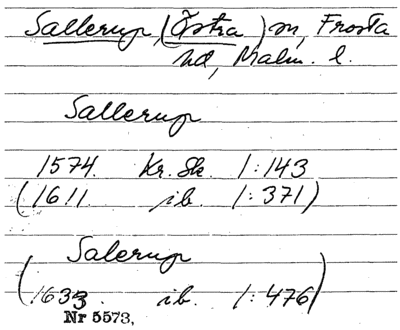 Sallerup, (Östra) sn, Frosta
hd, Malm. l.
Sallerup
1574 Kr. Sk. 1:143
(1611 ib. 1:371)
Salerup
(1633. ib. 1:476)
Nr 5573,